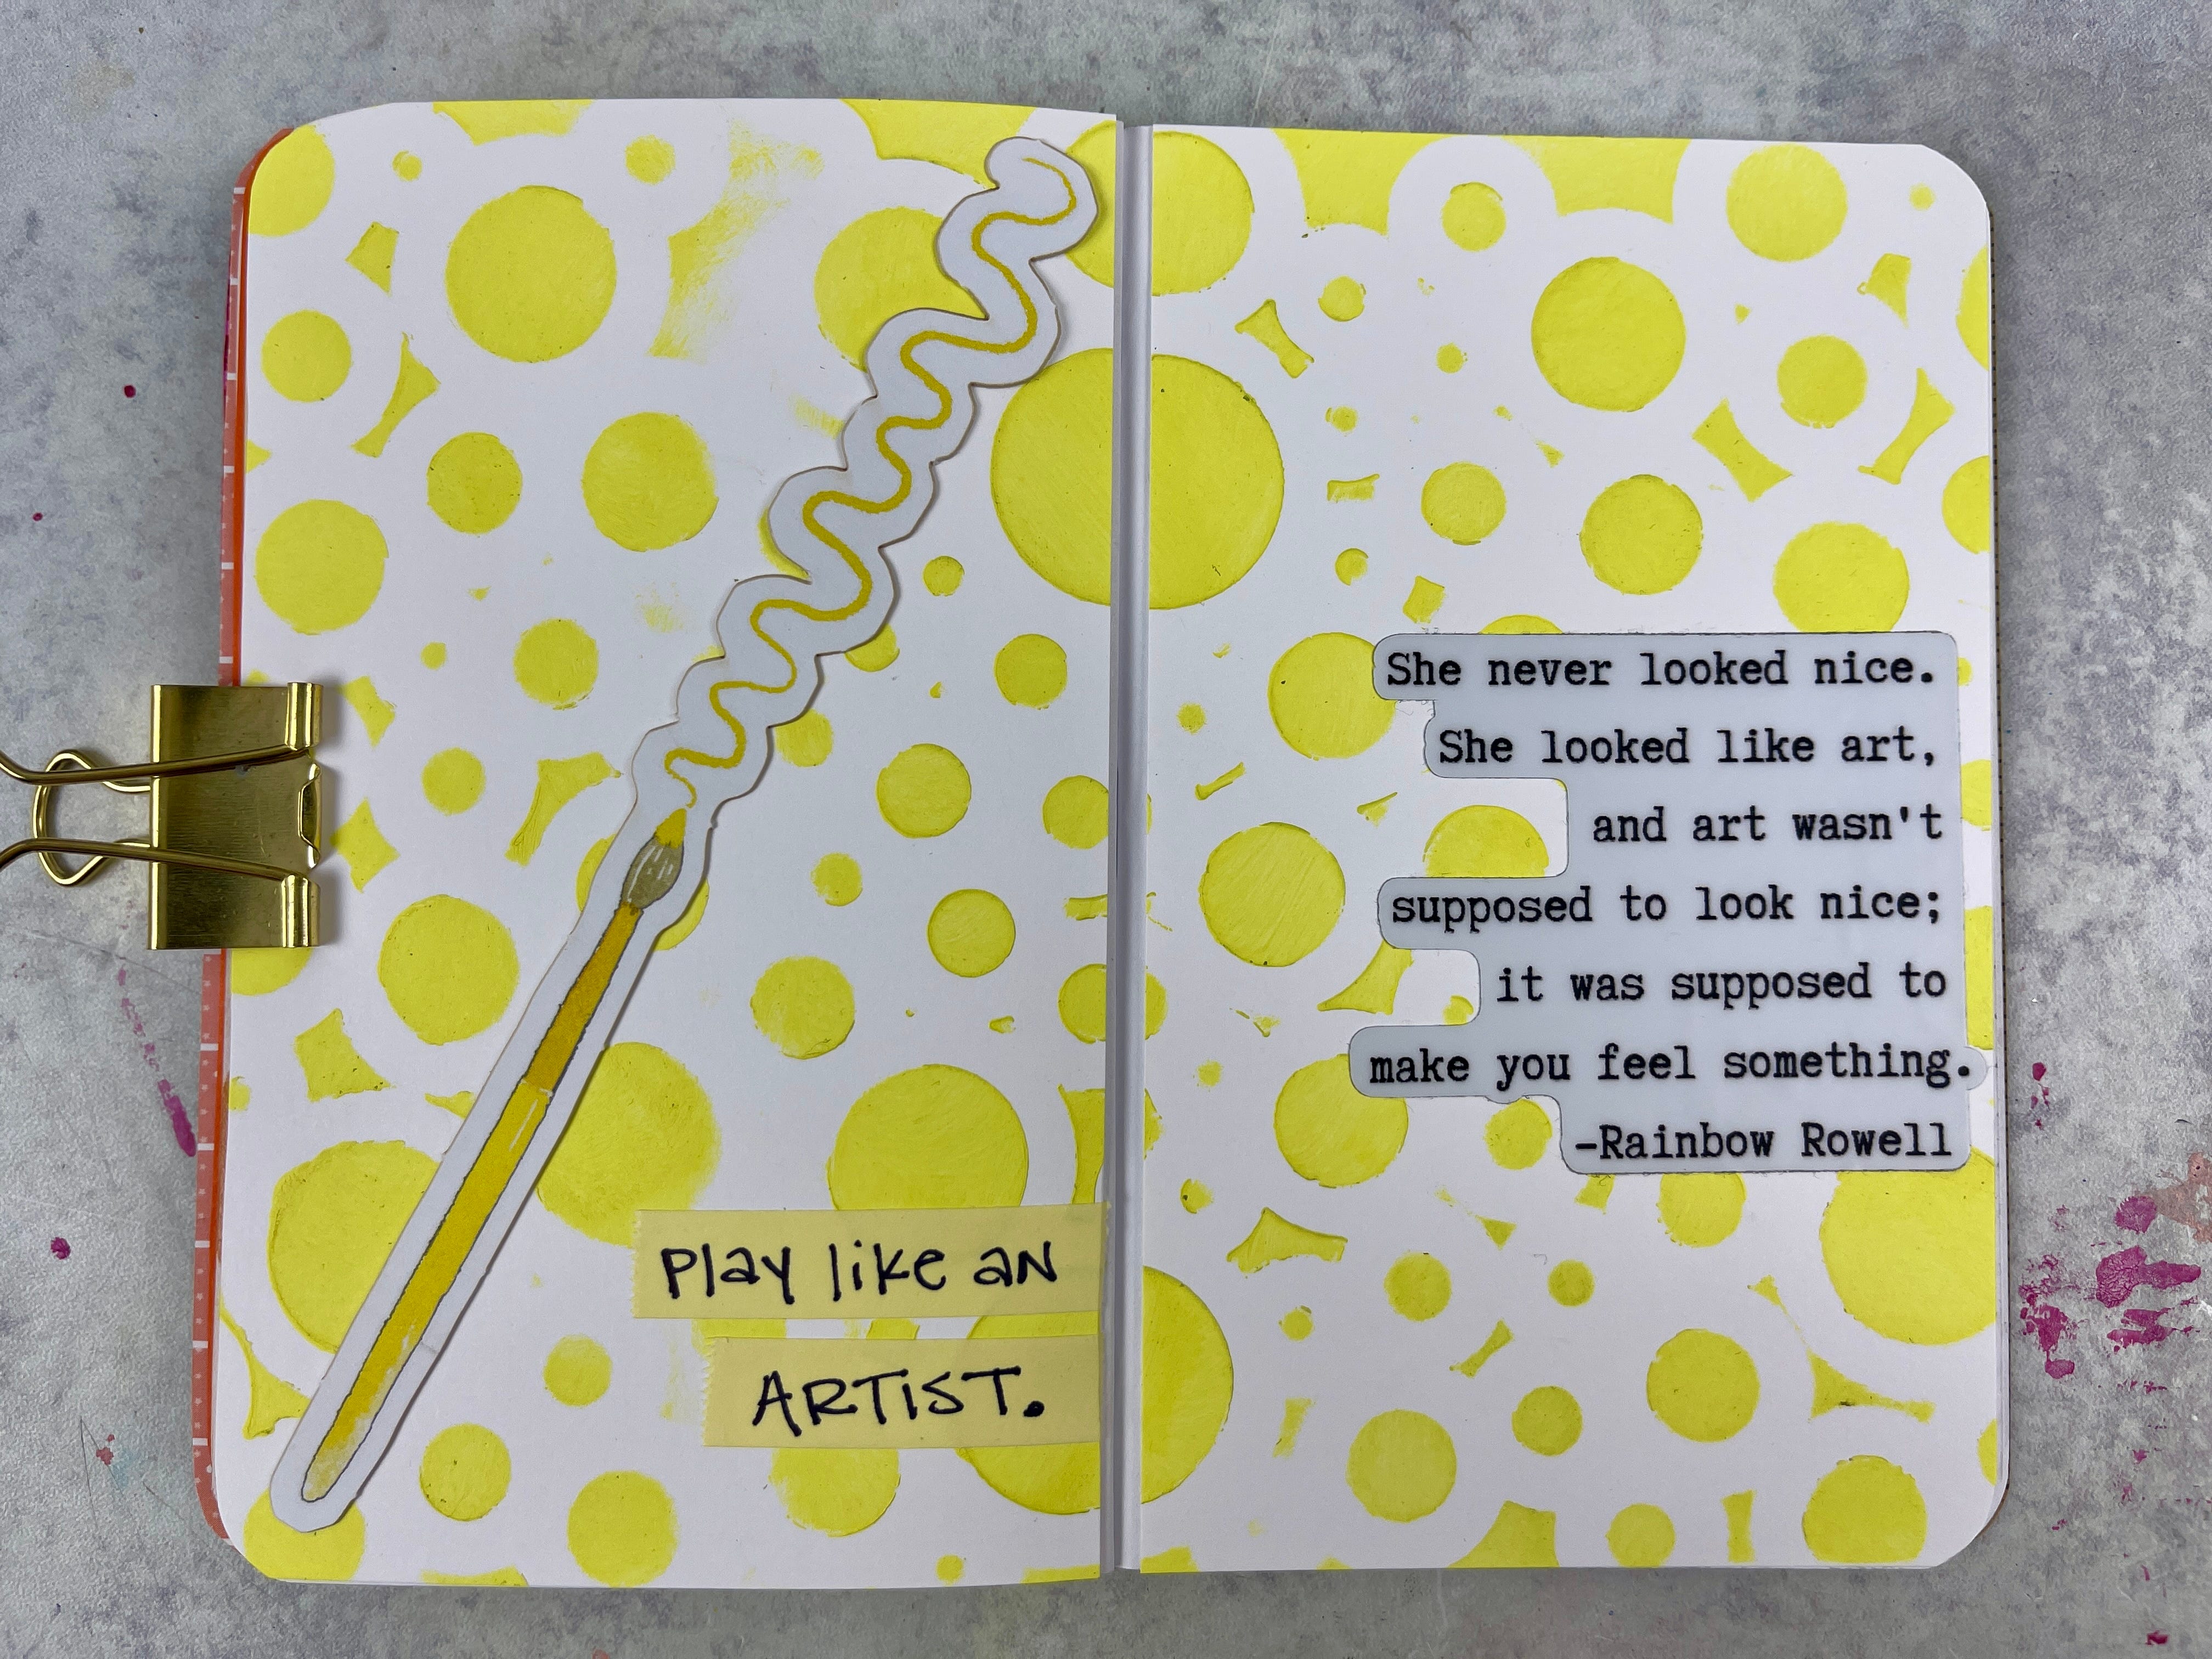 Play like an
ARTiST.
She never looked nice.
She looked like art,
and art wasn't
supposed to look nice;
it was supposed to
make you feel something.
-Rainbow Rowell